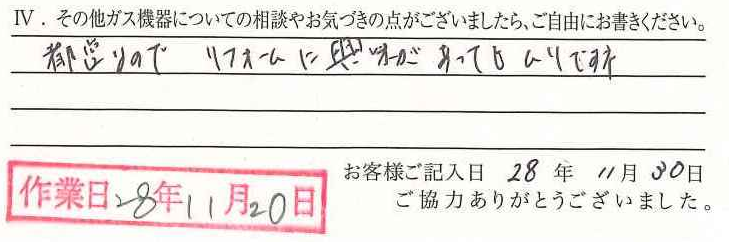 Ⅳ．その他ガス機器についての相談やお気づきの点がございましたら、ご自由にお書きください。
都営なので リフォームに興味があってもムリですネ
お客様ご記入日 28 年 11 月 30 日
作業日 28年11月20日
ご協力ありがとうございました。